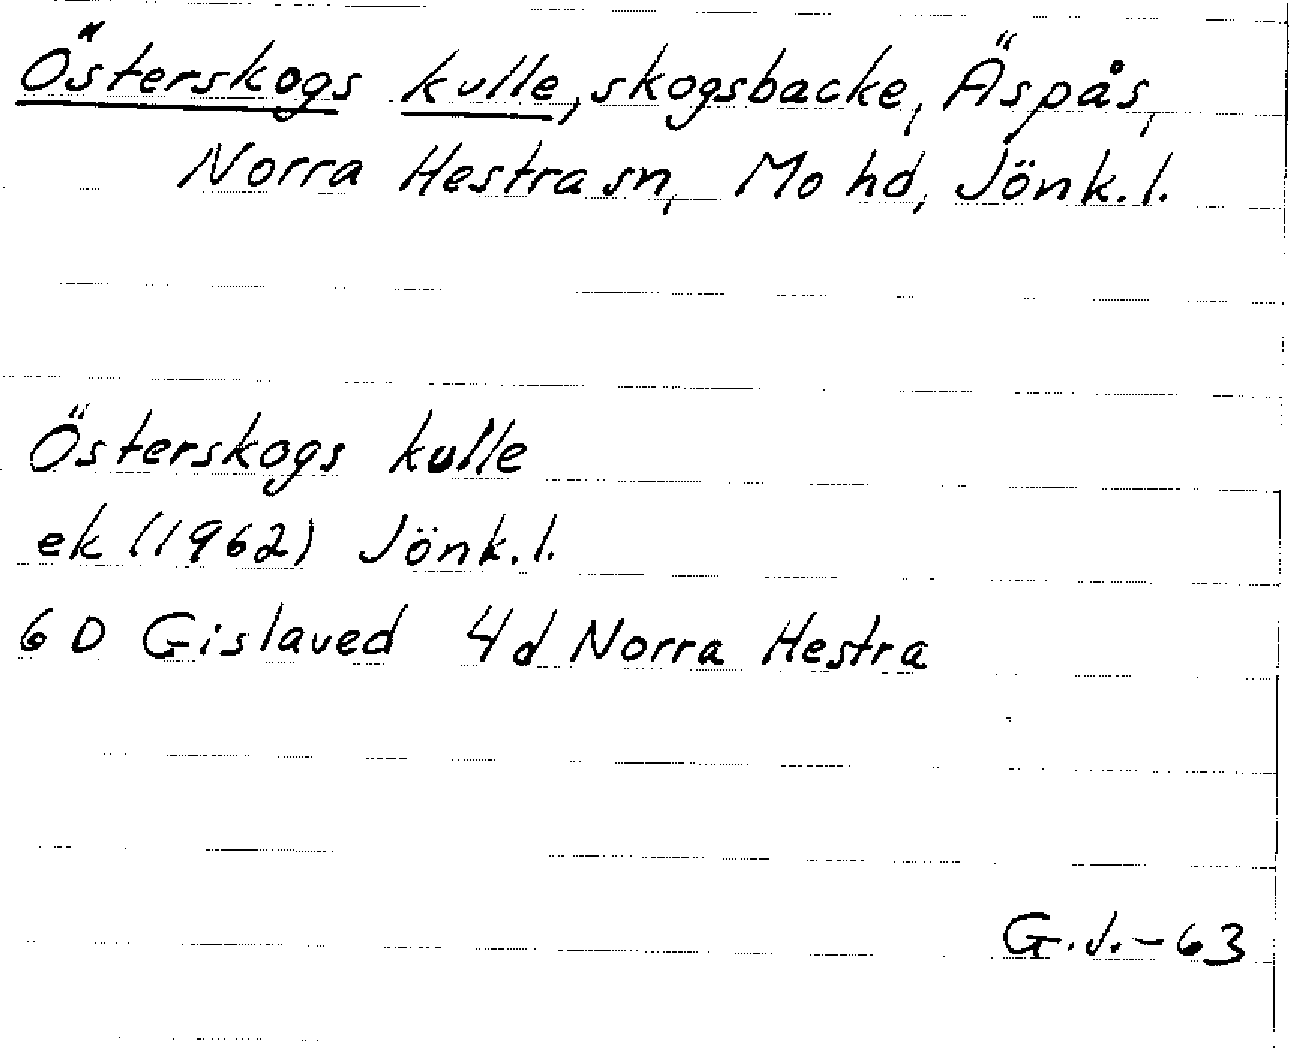 Österskogs kulle, skogsbacke, Äspås,
Norra Hestra sn, Mo hd, Jönk.l.
Österskogs kulle
ek (1962) Jönk.l.
6D Gislaved 4d Norra Hestra
G.J.-63